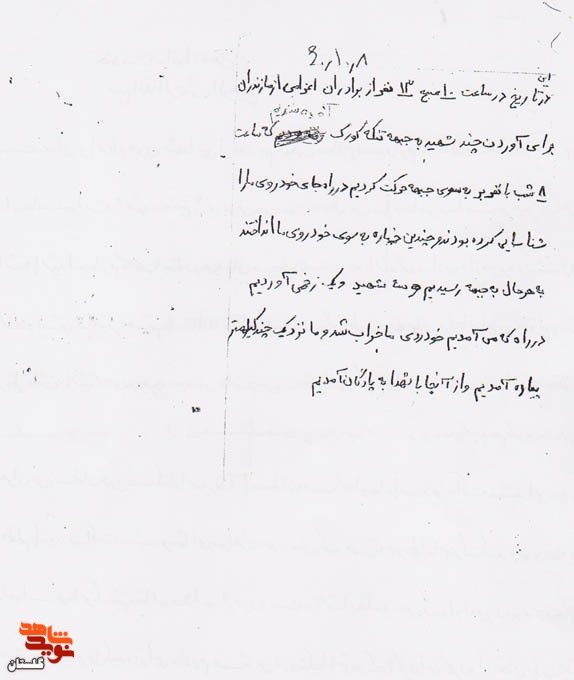 60,10,8
این
در تاریخ در ساعت 10 صبح 13 نفر از برادران اعزامی از مازندران
آماده شدیم
برای آوردن چند شهید به جبهه تنگه کورک که ساعت
8 شب با نفربر به سوی جبهه حرکت کردیم در راه جای خودروی ما را
شناسایی کرده بودند و چندین خمپاره به سوی خودروی ما انداختند
به هر حال به جبهه رسیدیم و سه شهید و یک زخمی آوردیم
در راه که می آمدیم خودروی ما خراب شد و ما نزدیک چند کیلومتر
پیاده آمدیم و از آنجا با شهدا به پادگان آمدیم
نوید شاهد
گلستان